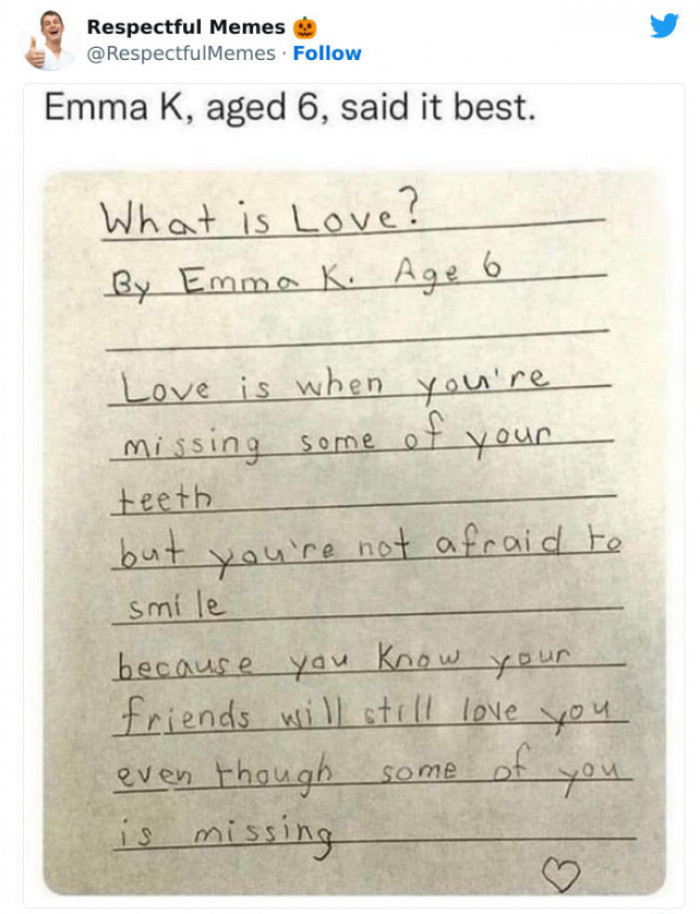 Respectful Memes 🎃
@RespectfulMemes · Follow
Emma K, aged 6, said it best.
What is Love?
By Emma K. Age 6
Love is when you're
missing some of your
teeth
but you're not afraid to
smile
because you know your
friends will still love you
even though some of you
is missing